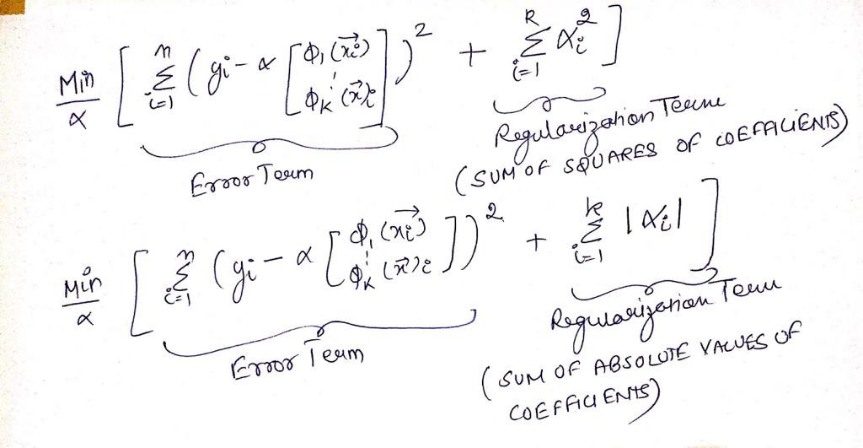 Min α [ n Σ i=1 (yi - α [ϕ1(x⃗i) ⋮ ϕK(x⃗)i])² + k Σ i=1 αi² ]
Error Term
Regularization Term
(SUM OF SQUARES OF COEFFICIENTS)
Min α [ n Σ i=1 (yi - α [ϕ1(x⃗i) ⋮ ϕK(x⃗)i])² + k Σ i=1 |αi| ]
Error Term
Regularization Term
(SUM OF ABSOLUTE VALUES OF
COEFFICIENTS)